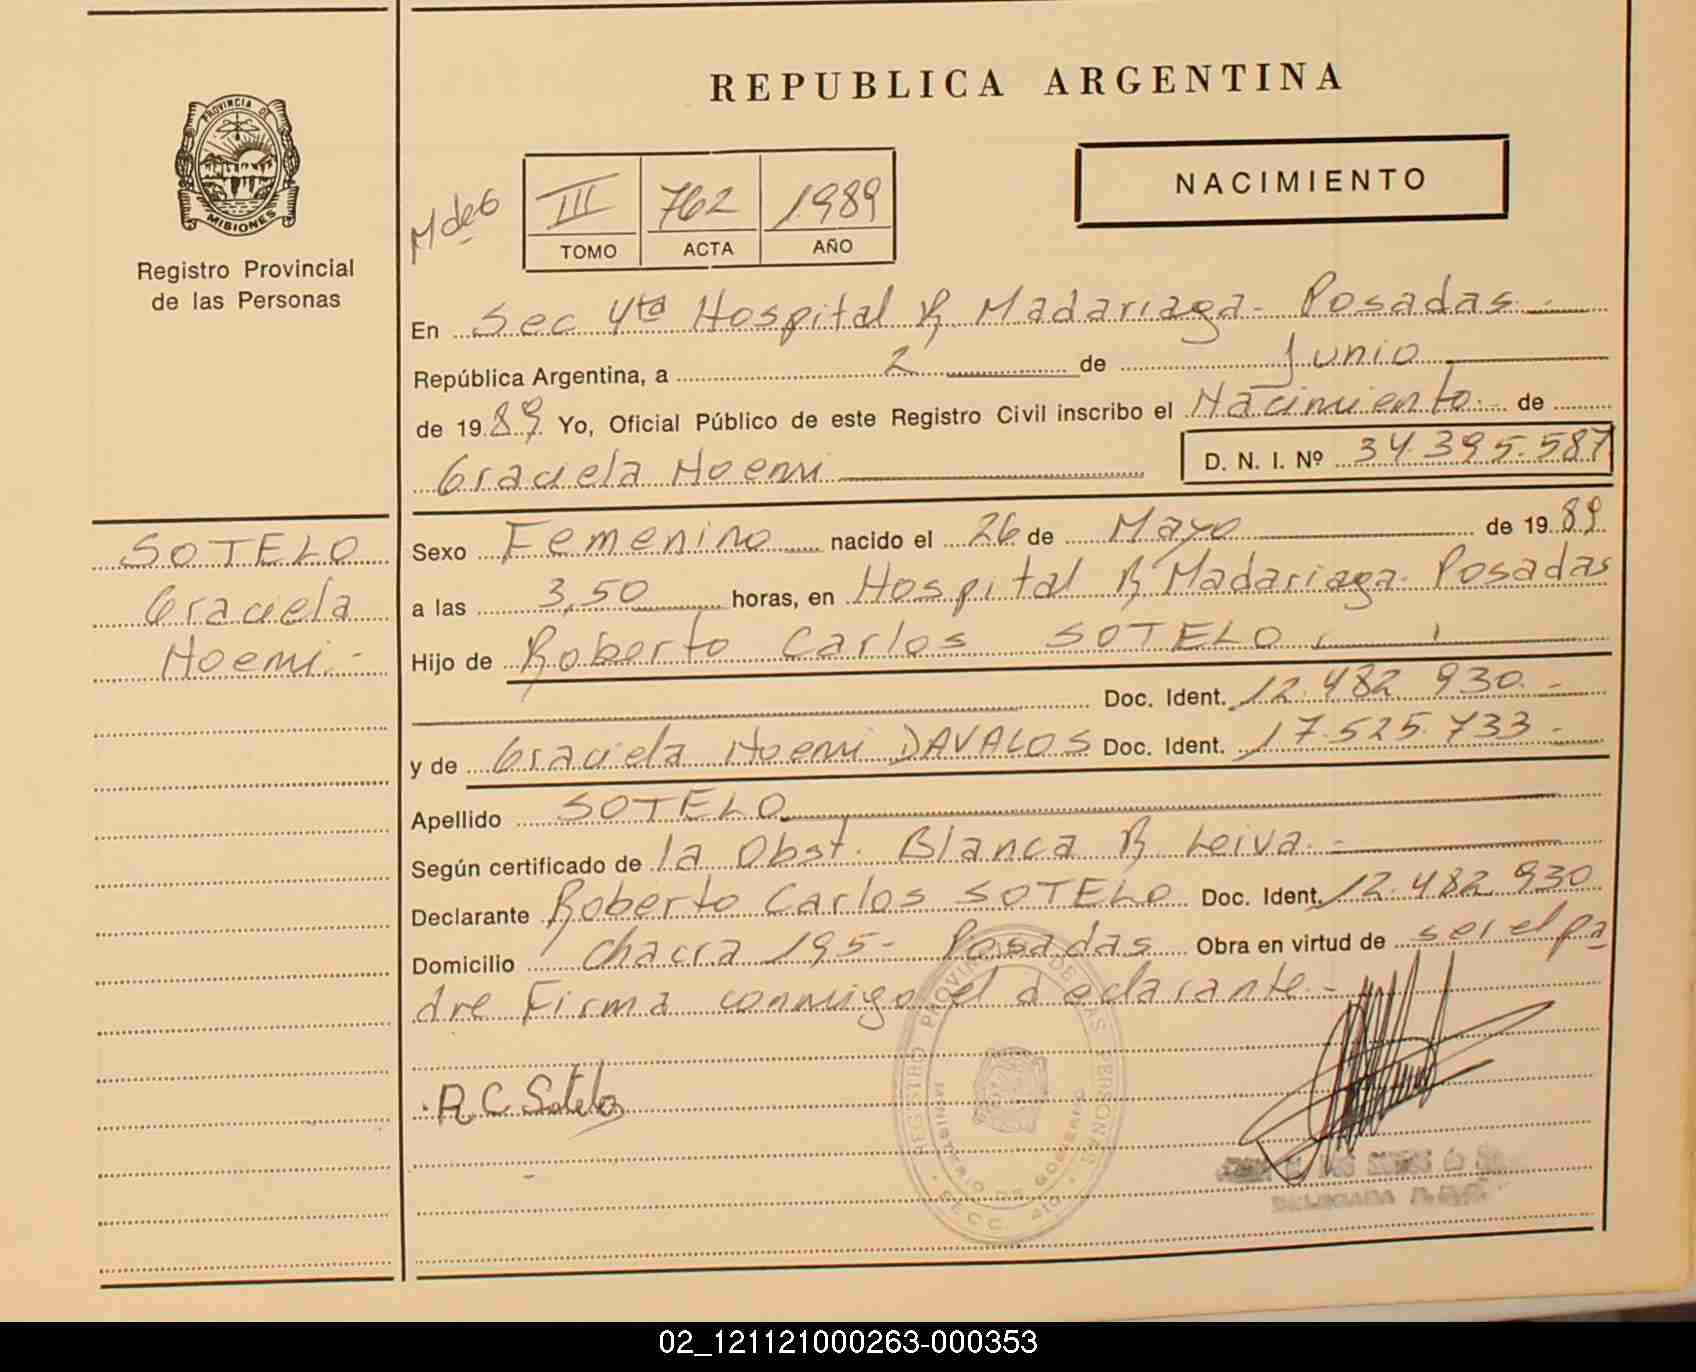 REPUBLICA ARGENTINA
NACIMIENTO
PROVINCIA DE
MISIONES
Registro Provincial
de las Personas
M de 6
III 762 1989
TOMO ACTA AÑO
En Sec 4ta Hospital R Madariaga - Posadas -
República Argentina, a 2 de Junio
de 1989 Yo, Oficial Público de este Registro Civil inscribo el Nacimiento de
Graciela Noemi D. N. I. Nº 34.395.587
SOTELO
Graciela
Noemi.-
Sexo Femenino nacido el 26 de Mayo de 1989
a las 3,50 horas, en Hospital R Madariaga - Posadas
Hijo de Roberto Carlos SOTELO
Doc. Ident. 12.482 930.-
y de Graciela Noemi DAVALOS Doc. Ident. 17.525.733-
Apellido SOTELO
Según certificado de la Obst. Blanca R Leiva.-
Declarante Roberto Carlos SOTELO Doc. Ident. 12.482 930
Domicilio Chacra 195- Posadas Obra en virtud de ser el pa
dre Firma conmigo el declarante-
R C Sotelo
REGISTRO PROVINCIAL DE LAS PERSONAS
MINISTERIO DE GOBIERNO
SECC. 4ta
02_121121000263-000353